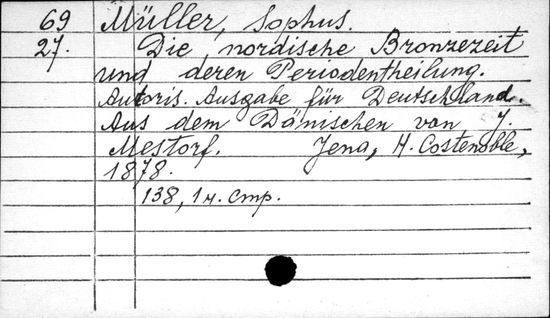 69 Müller, Sophus.
27. Die nordische Bronzezeit
und deren Periodentheilung.
Autoris. Ausgabe für Deutschland.
Aus dem Dänischen von J.
Mestorf. Jena, H. Costenoble,
1878.
138, 1 н. стр.